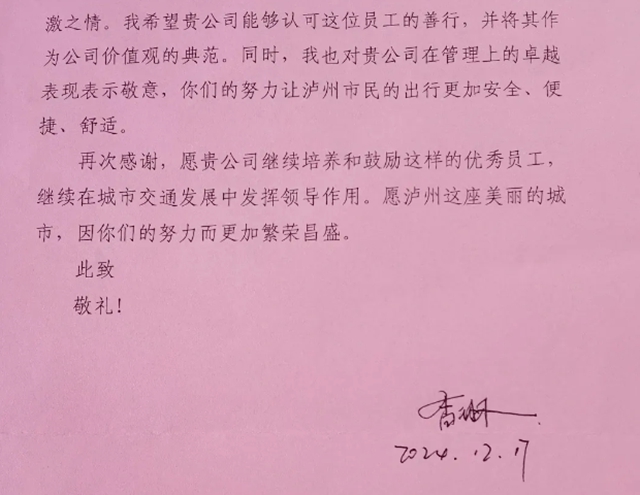 激之情。我希望贵公司能够认可这位员工的善行，并将其作
为公司价值观的典范。同时，我也对贵公司在管理上的卓越
表现表示敬意，你们的努力让泸州市民的出行更加安全、便
捷、舒适。
再次感谢，愿贵公司继续培养和鼓励这样的优秀员工，
继续在城市交通发展中发挥领导作用。愿泸州这座美丽的城
市，因你们的努力而更加繁荣昌盛。
此致
敬礼！
2024.12.17